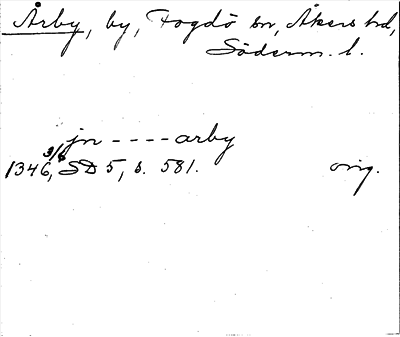 Årby, by, Fogdö sn, Åkers hd,
Söderm. l.
jn - - - - arby
1346 3/6, SD 5, s. 581. orig.